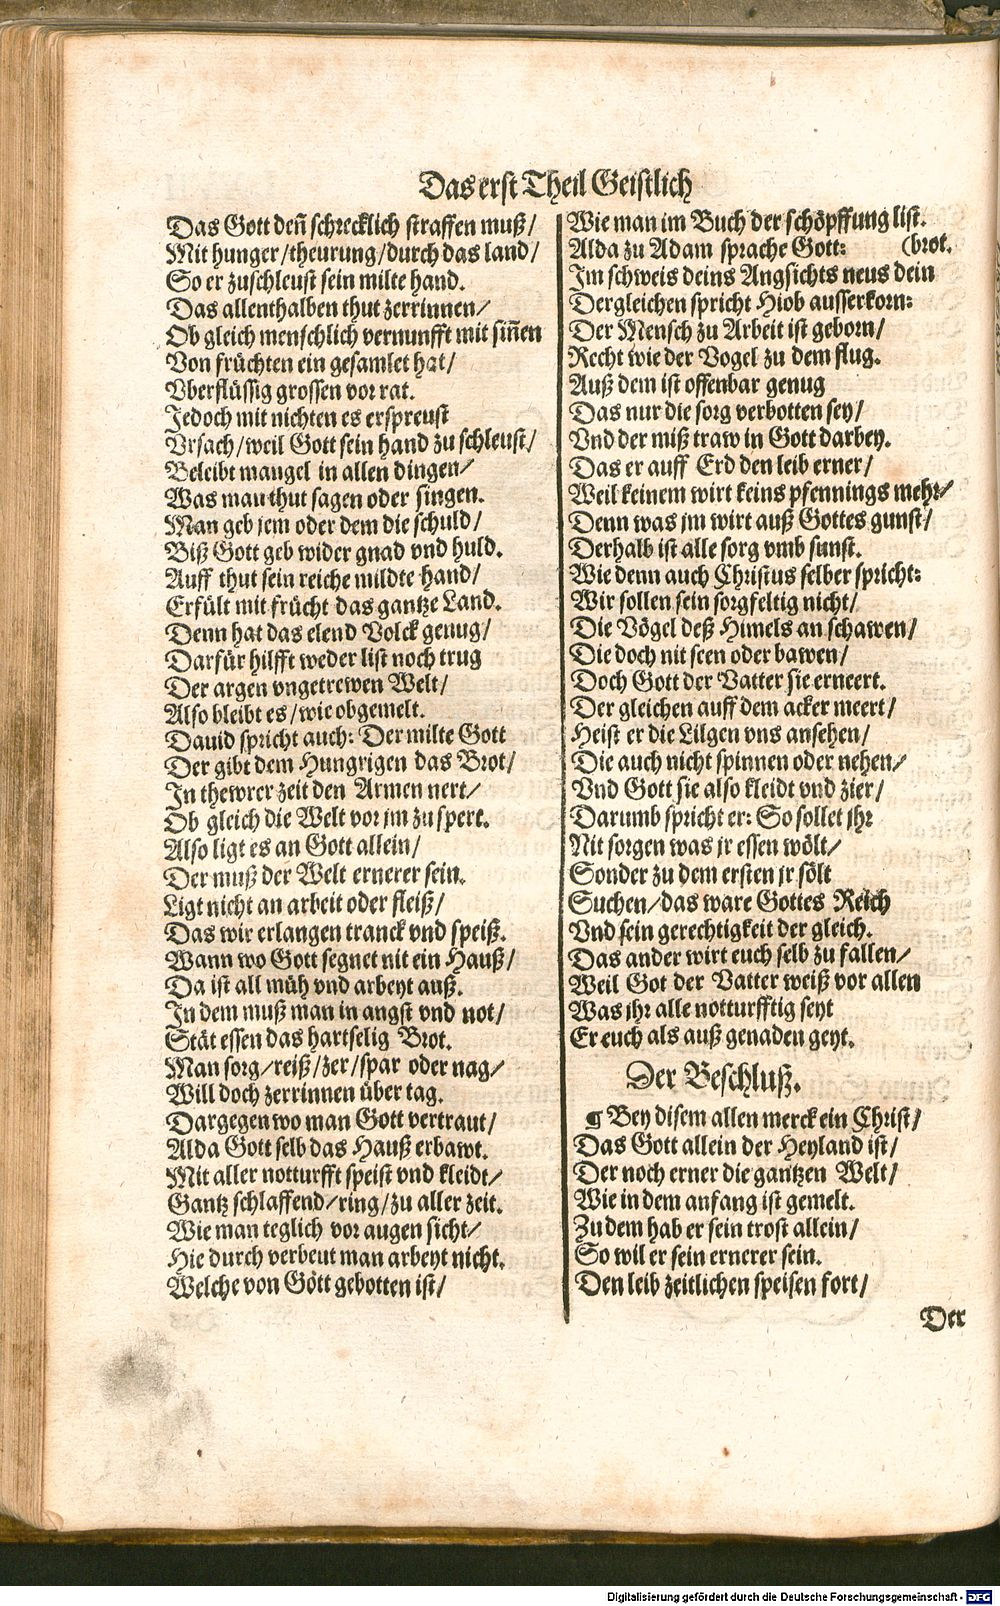 Das erst Theil Geistlich
Das Gott deñ schrecklich straffen muß/
Mit hunger/theurung/durch das land/
So er zuschleust sein milte hand.
Das allenthalben thut zerrinnen/
Ob gleich menschlich vernunfft mit siñen
Von früchten ein gesamlet hat/
Vberflüssig grossen vor rat.
Jedoch mit nichten es erspreust
Vrsach/weil Gott sein hand zu schleust/
Beleibt mangel in allen dingen/
Was man thut sagen oder singen.
Man geb jem oder dem die schuld/
Biß Gott geb wider gnad vnd huld.
Auff thut sein reiche mildte hand/
Erfült mit frücht das gantze Land.
Denn hat das elend Volck genug/
Darfür hilfft weder list noch trug
Der argen vngetrewen Welt/
Also bleibt es/wie obgemelt.
Dauid spricht auch: Der milte Gott
Der gibt dem Hungrigen das Brot/
In thewrer zeit den Armen nert/
Ob gleich die Welt vor jm zu spert.
Also ligt es an Gott allein/
Der muß der Welt ernerer sein.
Ligt nicht an arbeit oder fleiß/
Das wir erlangen tranck vnd speiß.
Wann wo Gott segnet nit ein Hauß/
Da ist all müh vnd arbeyt auß.
In dem muß man in angst vnd not/
Stät essen das hartselig Brot.
Man sorg/reiß/zer/spar oder nag/
Will doch zerrinnen über tag.
Dargegen wo man Gott vertraut/
Alda Gott selb das Hauß erbawt.
Mit aller notturfft speist vnd kleidt/
Gantz schlaffend/ring/zu aller zeit.
Wie man teglich vor augen sicht/
Hie durch verbeut man arbeyt nicht.
Welche von Gött gebotten ist/
Wie man im Buch der schöpffung list.
Alda zu Adam sprache Gott: (brot.
Im schweis deins Angsichts neus dein
Dergleichen spricht Hiob ausserkorn:
Der Mensch zu Arbeit ist geborn/
Recht wie der Vogel zu dem flug.
Auß dem ist offenbar genug
Das nur die sorg verbotten sey/
Vnd der miß traw in Gott darbey.
Das er auff Erd den leib erner/
Weil keinem wirt keins pfennings mehr/
Denn was jm wirt auß Gottes gunst/
Derhalb ist alle sorg vmb sunst.
Wie denn auch Christus selber spricht:
Wir sollen sein sorgfeltig nicht/
Die Vögel deß Himels an schawen/
Die doch nit seen oder bawen/
Doch Gott der Vatter sie erneert.
Der gleichen auff dem acker meert/
Heist er die Lilgen vns ansehen/
Die auch nicht spinnen oder nehen/
Vnd Gott sie also kleidt vnd zier/
Darumb spricht er: So sollet jhr
Nit sorgen was jr essen wölt/
Sonder zu dem ersten jr sölt
Suchen/das ware Gottes Reich
Vnd sein gerechtigkeit der gleich.
Das ander wirt euch selb zu fallen/
Weil Got der Vatter weiß vor allen
Was jhr alle notturfftig seyt
Er euch als auß genaden geyt.
Der Beschluß.
¶ Bey disem allen merck ein Christ/
Das Gott allein der Heyland ist/
Der noch erner die gantzen Welt/
Wie in dem anfang ist gemelt.
Zu dem hab er sein trost allein/
So wil er sein ernerer sein.
Den leib zeitlichen speisen fort/
Der
Digitalisierung gefördert durch die Deutsche Forschungsgemeinschaft - DFG